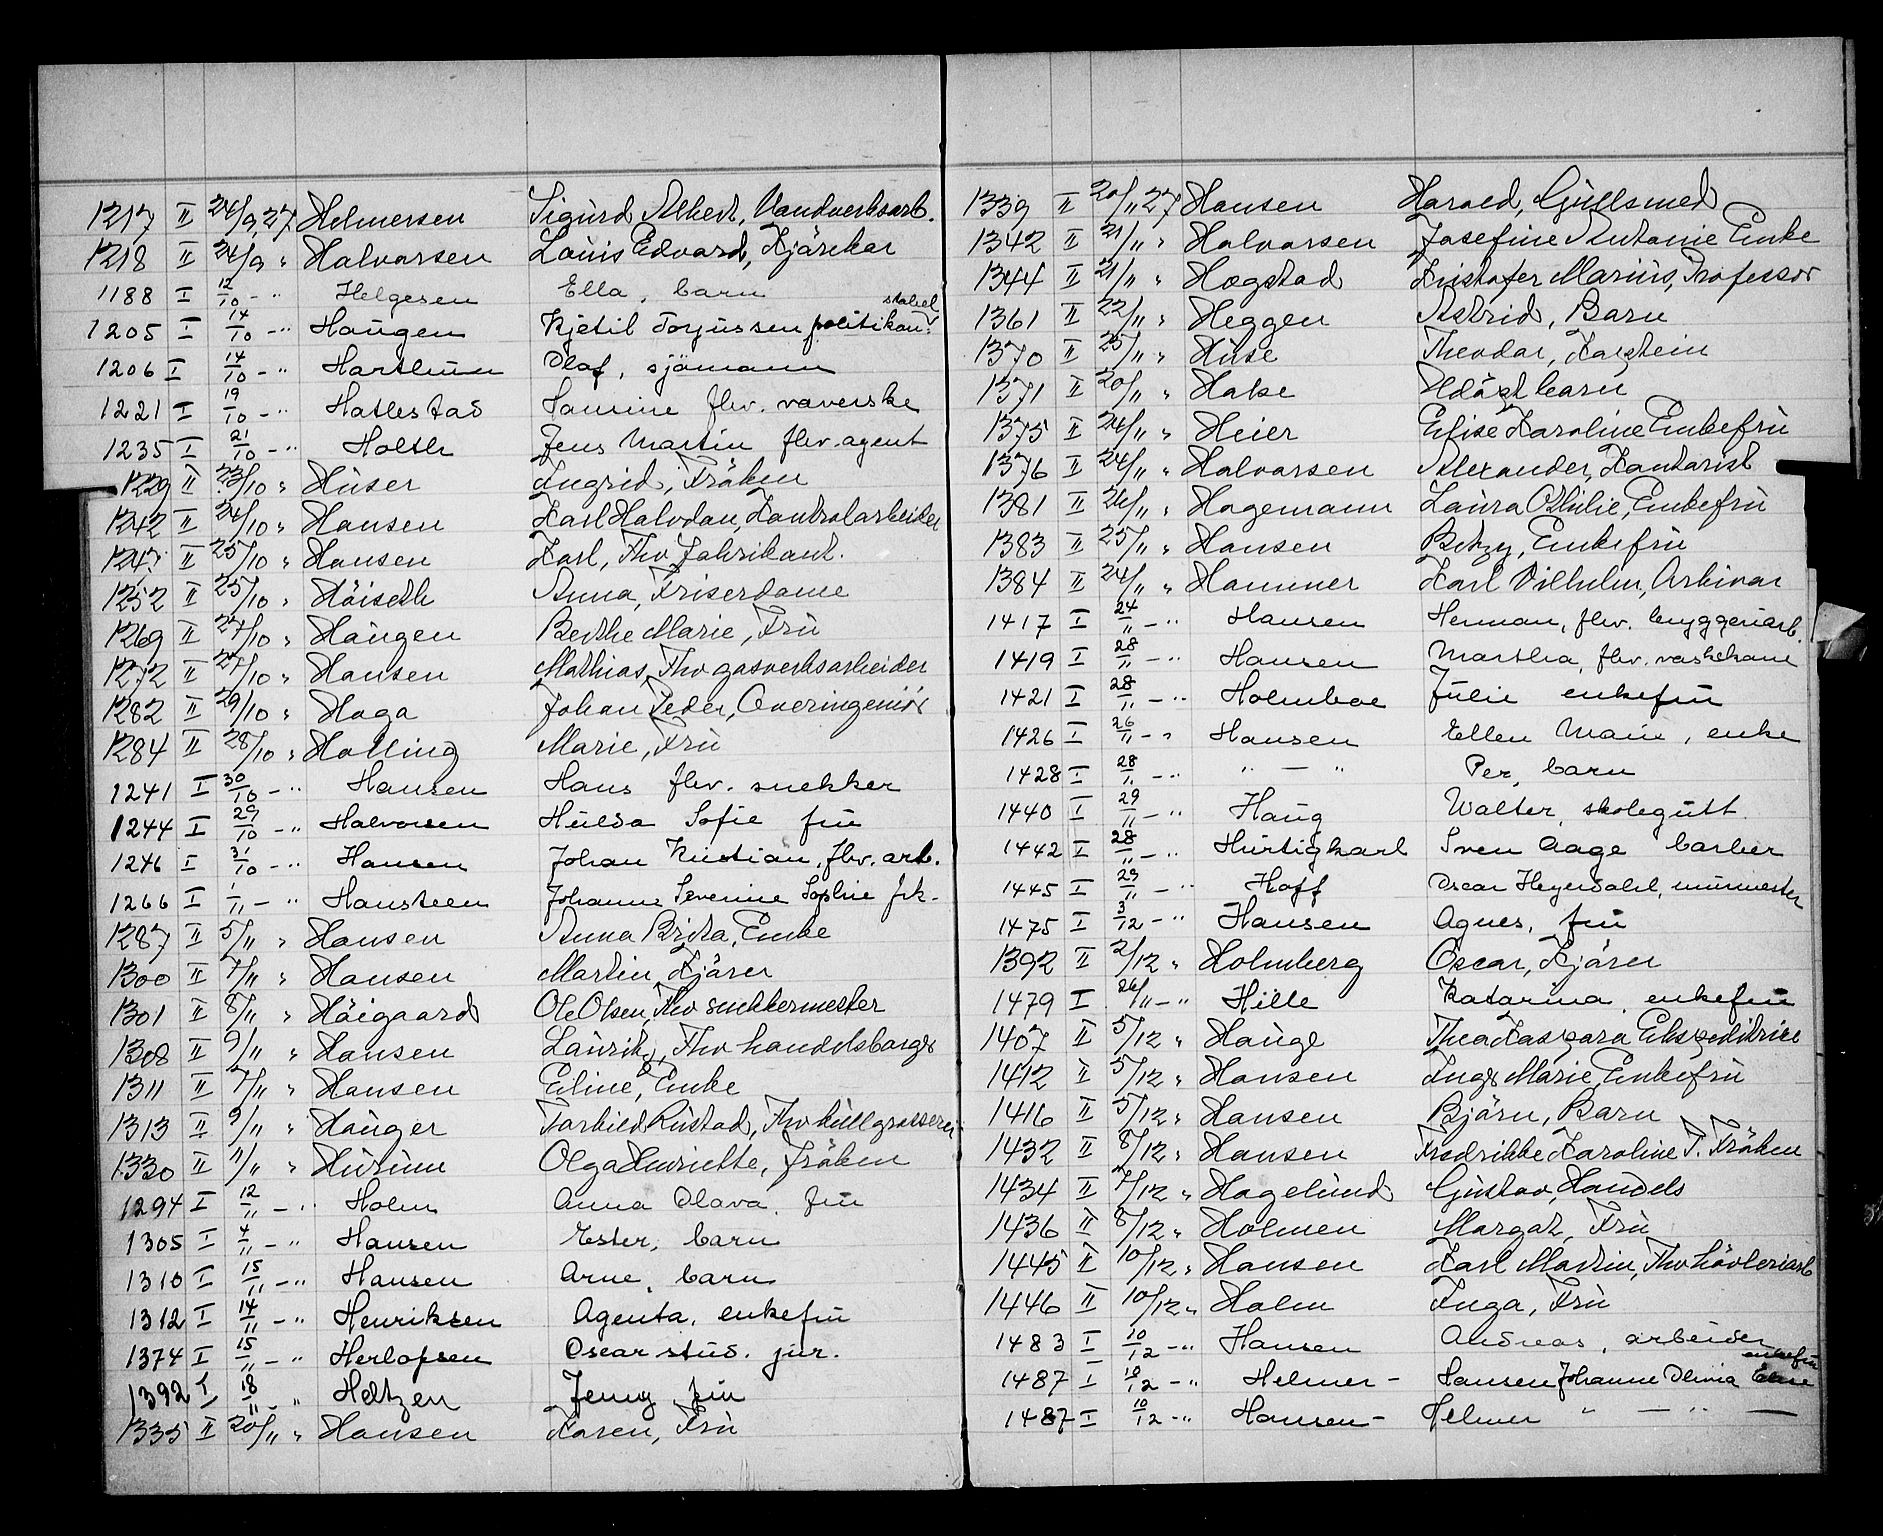 1217 II 24/9 27 Helmersen Sigurd Albert, Vandverksarb.
1218 II 24/9 " Halvorsen Louis Edvard, Kjørekar
1188 I 12/10 - " Helgesen Ella, barn
1205 I 14/10 - " Haugen Kjetil Torjussen politikonstabel
1206 I 14/10 - " Olaf, sjömann
1221 I 19/10 - " Hatlestad Samine fhv. væverske
1235 I 21/10 - " Holth Jens Martin fhv. agent
1229 II 23/10 " Huser Ingrid, Frøken
1242 II 24/10 " Hansen Karl Halvdan, Kontrolarbeider
1247 II 25/10 " Hansen Karl, Fhv Fabrikant.
1252 II 25/10 " Höiseth Anna, Friserdame
1269 II 27/10 " Haugen Berthe Marie, Fru
1272 II 27/10 " Hansen Mathias, Fhv gasverksarbeider
1282 II 29/10 " Haga Johan Peder, Overingeniør
1284 II 28/10 " Halling Marie, Fru
1241 I 30/10 - " Hansen Hans fhv. snekker
1244 I 29/10 - " Halvorsen Hulda Sofie fru
1246 I 31/10 - " Hansen Johan Kristian, fhv. arb.
1266 I 1/11 - " Hansteen Johanne Severine Sophie frk.
1287 II 5/11 " Hansen Anna Brita, Enke
1300 II 7/11 " Hansen Martin, Kjører
1301 II 8/11 " Höigaard Ole Olsen, Fhv snekkermester
1308 II 9/11 " Hansen Lauritz, Fhv handelsborger
1311 II 7/11 " Hansen Eline, Enke
1313 II 9/11 " Hauger Torbild Rustad, Fhv kullgrosserer
1330 II 11/11 " Husum Olga Henriette, Frøken
1294 I 12/11 - " Holm Anna Olava, fru
1305 I 4/11 - " Hansen Ester, barn
1310 I 15/11 - " Hansen Arne, barn
1312 I 14/11 - " Henriksen Agenta, enkefru
1374 I 15/11 - " Herlofsen Oscar stud. jur.
1392 I 18/11 - " Heltzen Jenny fru
1335 II 20/11 " Hansen Karen, Fru
1339 II 20/11 27 Hansen Harald, Gullsmed
1342 II 21/11 " Halvorsen Josefine Antonie Enke
1344 II 21/11 " Hægstad Kristofer Marius, Professor
1361 II 22/11 " Heggen Astrid, Barn
1370 II 25/11 " Huse Theodor,
1371 II 20/11 " Hake Udøpt barn
1375 II 26/11 " Heier Elise Karoline Enkefru
1376 II 24/11 " Halvorsen Alexander, Kontorist
1381 II 26/11 " Hagemann Laura Othilie, Enkefru
1383 II 25/11 " Hansen Betzy, Enkefru
1384 II 24/11 " Hammer Karl Vilhelm, Arkivar
1417 I 24/11 - " Hansen Herman, fhv. bryggeriarb.
1419 I 28/11 - " Hansen Martha, fhv. vaskekone
1421 I 28/11 - " Holmboe Julie enkefru
1426 I 26/11 - " Hansen Ellen Marie, enke
1428 I 28/11 - " " — " Per, barn
1440 I 29/11 - " Haug Walter, skolegutt
1442 I 28/11 - " Hurtigkarl Sven Aage barber
1445 I 29/11 - " Hoff Oscar Heyerdahl, murmester
1475 I 3/12 - " Hansen Agnes, fru
1392 II 2/12 " Holmberg Oscar, Kjører
1479 I 26/11 - " Hille Katarina, enkefru
1407 II 5/12 " Hauge Thea Kaspara Ekspeditrice
1412 II 5/12 " Hansen Inger Marie, Enkefru
1416 II 5/12 " Hansen Bjørn, Barn
1432 II 8/12 " Hansen Fredrikke Karoline P. Frøken
1434 II 7/12 " Hagelund Gustav, Handels
1436 II 8/12 " Holmen Margot, Fru
1445 II 10/12 " Hansen Karl Martin, Fhv høvleriarb
1446 II 10/12 " Holm Inga, Fru
1483 I 10/12 - " Hansen Andreas, arbeider
1487 I 10/12 - " Helmer - Hansen Johanne Olivia enkefru
1487 I 10/12 - " Hansen - Helmer " — " —